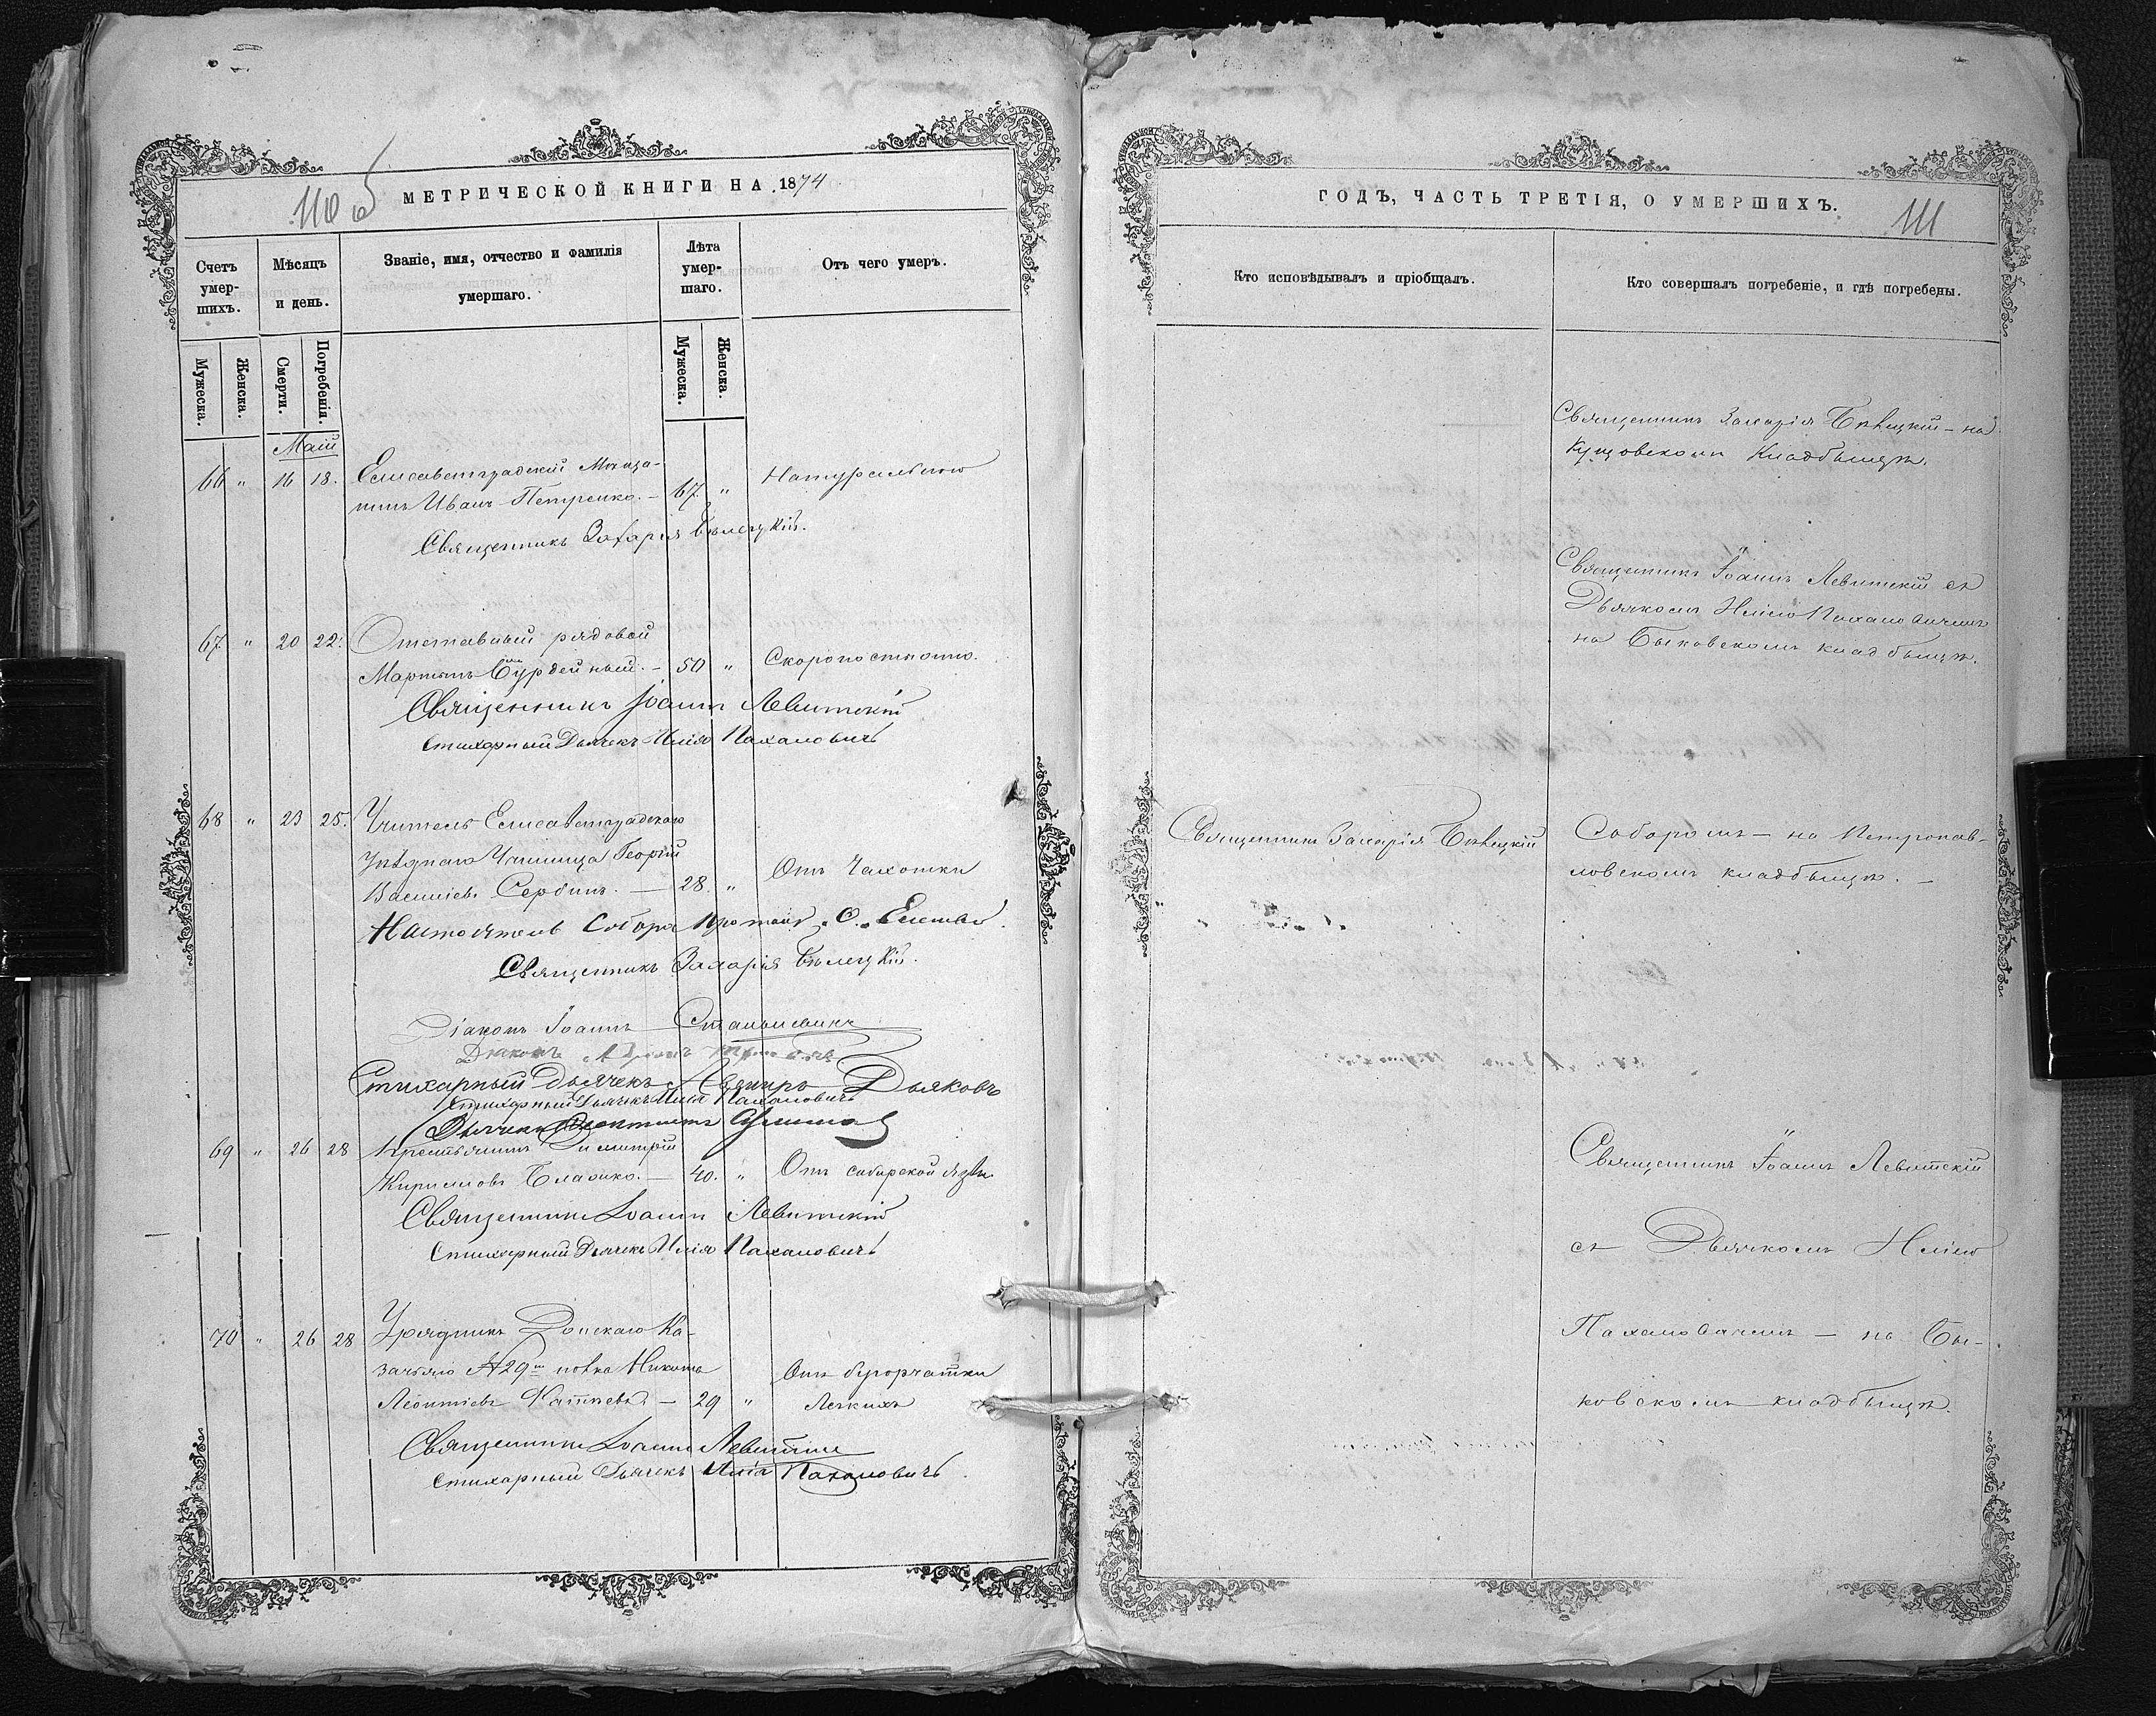 110 об
МЕТРИЧЕСКОЙ КНИГИ НА 1874
Счетъ умер-шихъ.
Мѣсяцъ и день.
Званіе, имя, отчество и фамилія умершаго.
Лѣта умер-шаго.
Отъ чего умеръ.
Мужеска.
Женска.
Смерти.
Погребенія.
Мужеска.
Женска.
Маій
66 " 16 18. Елисаветградскій Мѣща-
нинъ Иванъ Петренко. — 67. " Натурально
Священникъ Захарія Бѣлецкій.
67 " 20 22. Отставный рядовой
Мартинъ Бурдейный. — 50 " Скоропостижно.
Священникъ Іоаннъ Левитскій
Стихарный Дьячекъ Илія Пахаловичъ
68 " 23 25. Учитель Елисаветградскаго
Уѣзднаго Училища Георгій
Василіевъ Сербинъ. — 28. " Отъ Чахотки
Настоятель Собора Протоіе.
Священникъ Захарія Бѣлецкій.
Діаконъ Іоаннъ
Діаконъ
Стихарный Дьячекъ Дьяковъ
Стихарный Дьячекъ Илія Пахаловичъ
Дьячекъ
69 " 26 28 Крестьянинъ Димитрій
Кириловъ Власенко. — 40. " Отъ сибирской язвы
Священникъ Іоаннъ Левитскій
Стихарный Дьячекъ Илія Пахаловичъ
70 " 26 28 Урядникъ Донскаго Ка-
зачьяго №29го полка Никита
Леонтіевъ — 29 " Отъ бугорчатки
Легкихъ
Священникъ Іоаннъ Левитскій
Стихарный Дьячекъ Илія Пахаловичъ
ГОДЪ, ЧАСТЬ ТРЕТІЯ, О УМЕРШИХЪ.
111
Кто исповѣдывалъ и пріобщалъ.
Кто совершалъ погребеніе, и гдѣ погребены.
Священникъ Захарія Бѣлецкій — на
Кущовскомъ Кладбищѣ.
Священникъ Іоаннъ Левитскій съ
Дьячкомъ Иліею Пахаловичемъ
на Быковскомъ кладбищѣ.
Священникъ Захарія Бѣлецкій
Соборомъ — на Петропав-
ловскомъ кладбищѣ. —
Священникъ Іоаннъ Левитскій
съ Дьячкомъ Иліею
Пахаловичемъ — на Бы-
ковскомъ кладбищѣ.